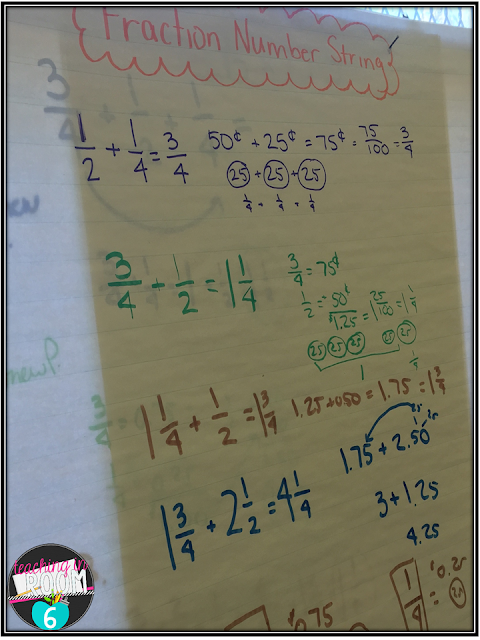 Fraction Number String
1/2 + 1/4 = 3/4
50¢ + 25¢ = 75¢ = 75/100 = 3/4
25 + 25 + 25
1/4 + 1/4 + 1/4
3/4 + 1/2 = 1 1/4
3/4 = 75¢
1/2 = 50¢
$1.25 = 1 25/100 = 1 1/4
25 25 25 25 25
1 1/4
1 1/4 + 1/2 = 1 3/4
1.25 + 0.50 = 1.75 = 1 3/4
1 3/4 + 2 1/2 = 4 1/4
.25 .25
1.75 + 2.50
3 + 1.25
4.25
1/4 = 0.25
25
0.75
new?
3/4
3/4 + 1/2 + 1/4 =
teaching in
ROOM
6